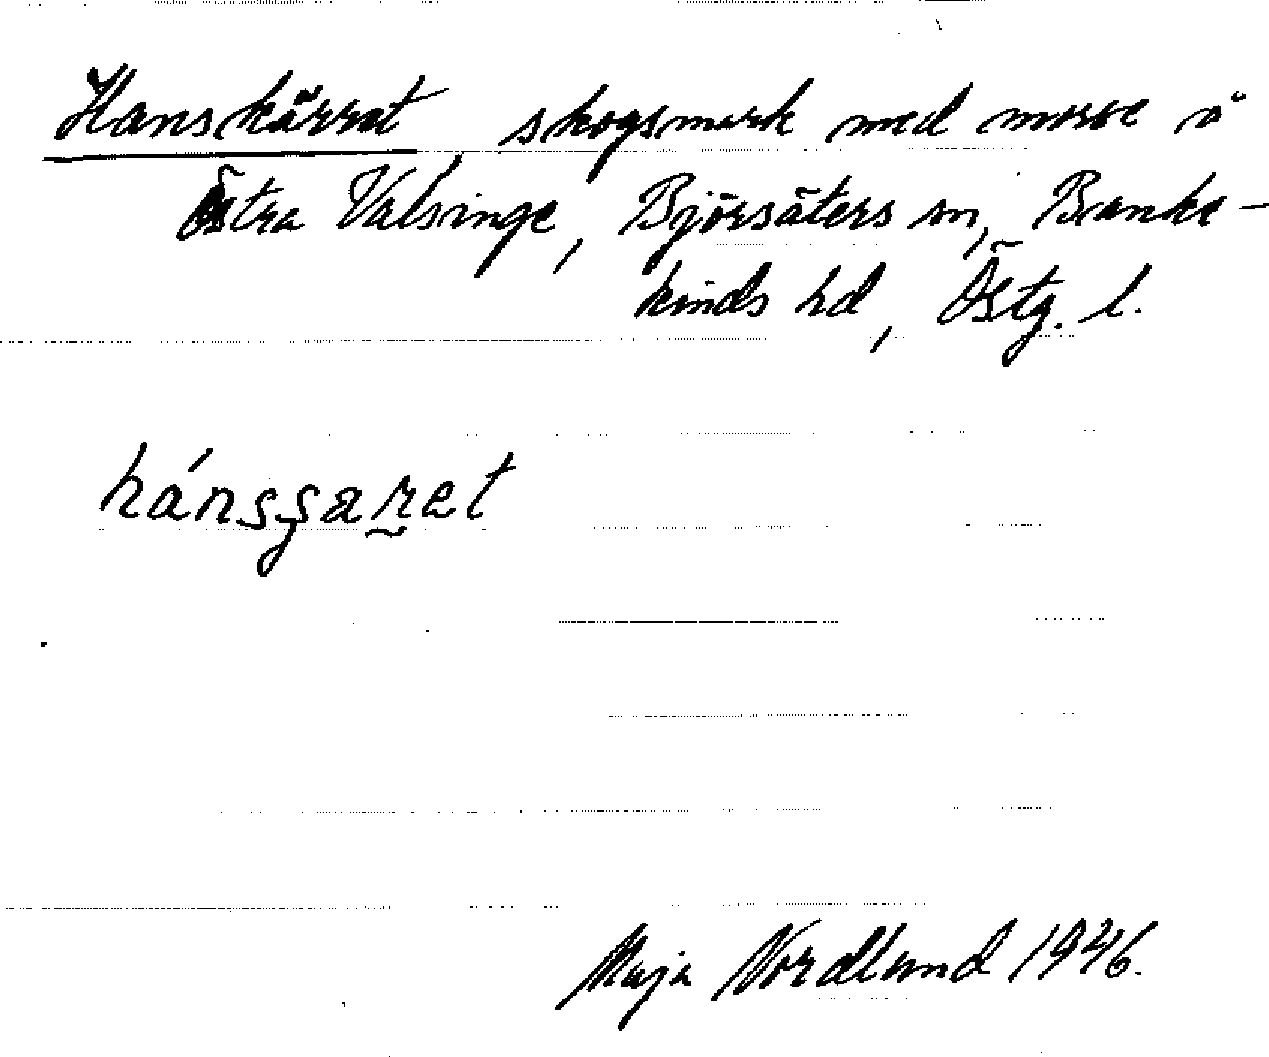 Hanskärret skogsmark med mosse å
Östra Valsinge, Björsäters sn, Banke-
kinds hd, Östg. l.
Maja Nordlund 1946.